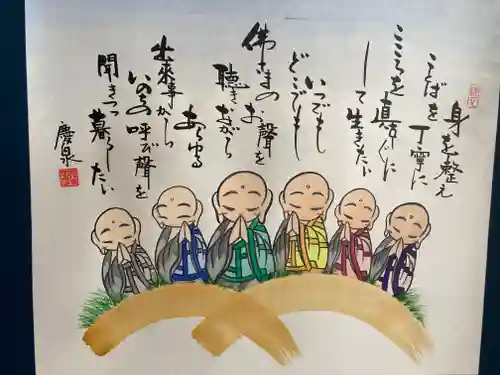 身を整え
ことばを丁寧に
こころを真直ぐに
して生きたい
いつでも
どこでも
佛さまのお聲を
聴きながら
あらゆる
出来事から
いのちの呼び聲を
聞きつつ暮らしたい
慶泉